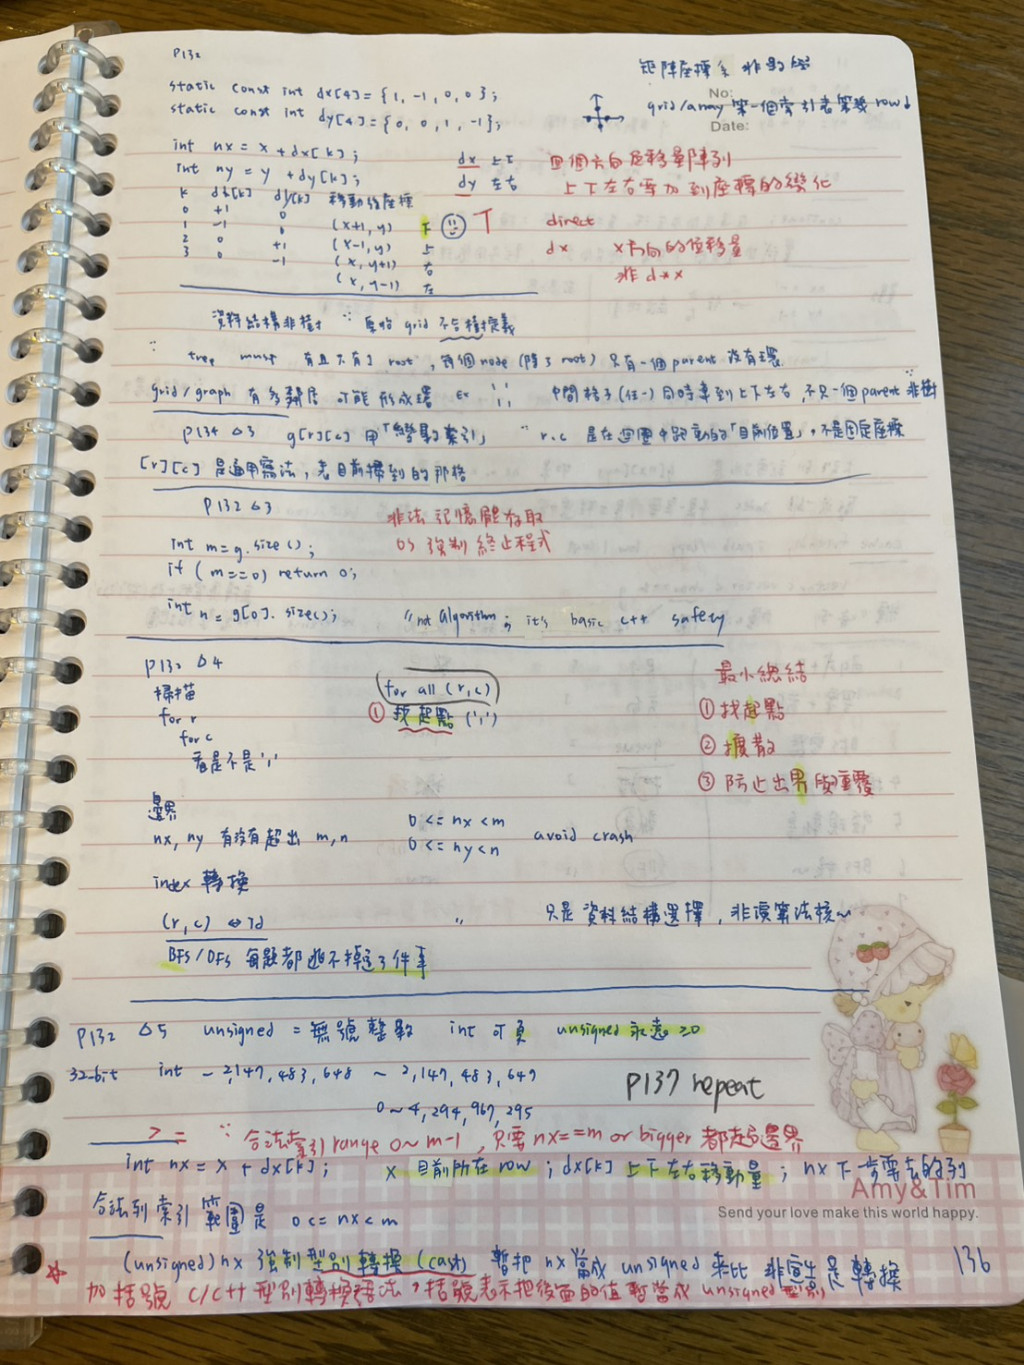 P132
矩陣座標系 非數學
No:
Date:
static const int dx[4]={1,-1,0,0};
grid/array 第一個索引者第幾 row
static const int dy[4]={0,0,1,-1};
int nx = x + dx[k];
dx 上下
四個方向位移量陣列
int ny = y + dy[k];
dy 左右
上下左右要加到座標的變化
k dx[k] dy[k] 移動後座標
0 +1 0 (x+1,y) 下
direct
1 -1 0 (x-1,y) 上
dx x方向的位移量
2 0 +1 (x,y+1) 右
非 d*x
3 0 -1 (x,y-1) 左
資料結構非樹 ∵ 原始 grid 不合樹定義
∵ tree must 有且只有1 root, 每個node(除了root)只有一個parent 沒有環
grid/graph 有多鄰居 可能形成環 ex 中間格子(任一)同時連到上下左右,不只一個parent 非樹
P134 △3 g[r][c] 用「變數索引」 ∵ r.c 是在迴圈中跑動的「目前位置」,不是固定座標
[r][c] 是通用寫法,表目前掃到的那格
P132 △3
非法記憶體存取
OS 強制終止程式
int m=g.size();
if (m==0) return 0;
int n=g[0].size();
"not algorithm; it's basic c++ safety
P132 △4
掃描
for r
for c
看是不是'1'
for all (r,c)
① 找起點 ('1')
最小總結
① 找起點
② 擴散
③ 防止出界與重覆
邊界
nx, ny 有沒有超出 m,n
0 <= nx < m
0 <= ny < n
avoid crash
index 轉換
(r,c) ↔ id
只是資料結構選擇,非演算法核~
BFS/DFS 每題都逃不掉這3件事
P132 △5 unsigned = 無號整數 int 可負 unsigned 永遠 ≥0
32-bit int -2,147,483,648 ~ 2,147,483,647
0~4,294,967,295
P137 repeat
>= ∵ 合法索引 range 0~m-1, 只要 nx==m or bigger 都超過邊界
int nx = x + dx[k]; x 目前所在 row; dx[k] 上下左右移動量; nx 下一步要去的列
Amy&Tim
Send your love make this world happy.
合法列索引範圍是 0<=nx<m
(unsigned)nx 強制型別轉換(cast) 暫把 nx 當成 unsigned 來比 非宣告是轉換
136
☆ 加括號 C/C++ 型別轉換語法,括號表示把後面的值暫當成 unsigned 型別